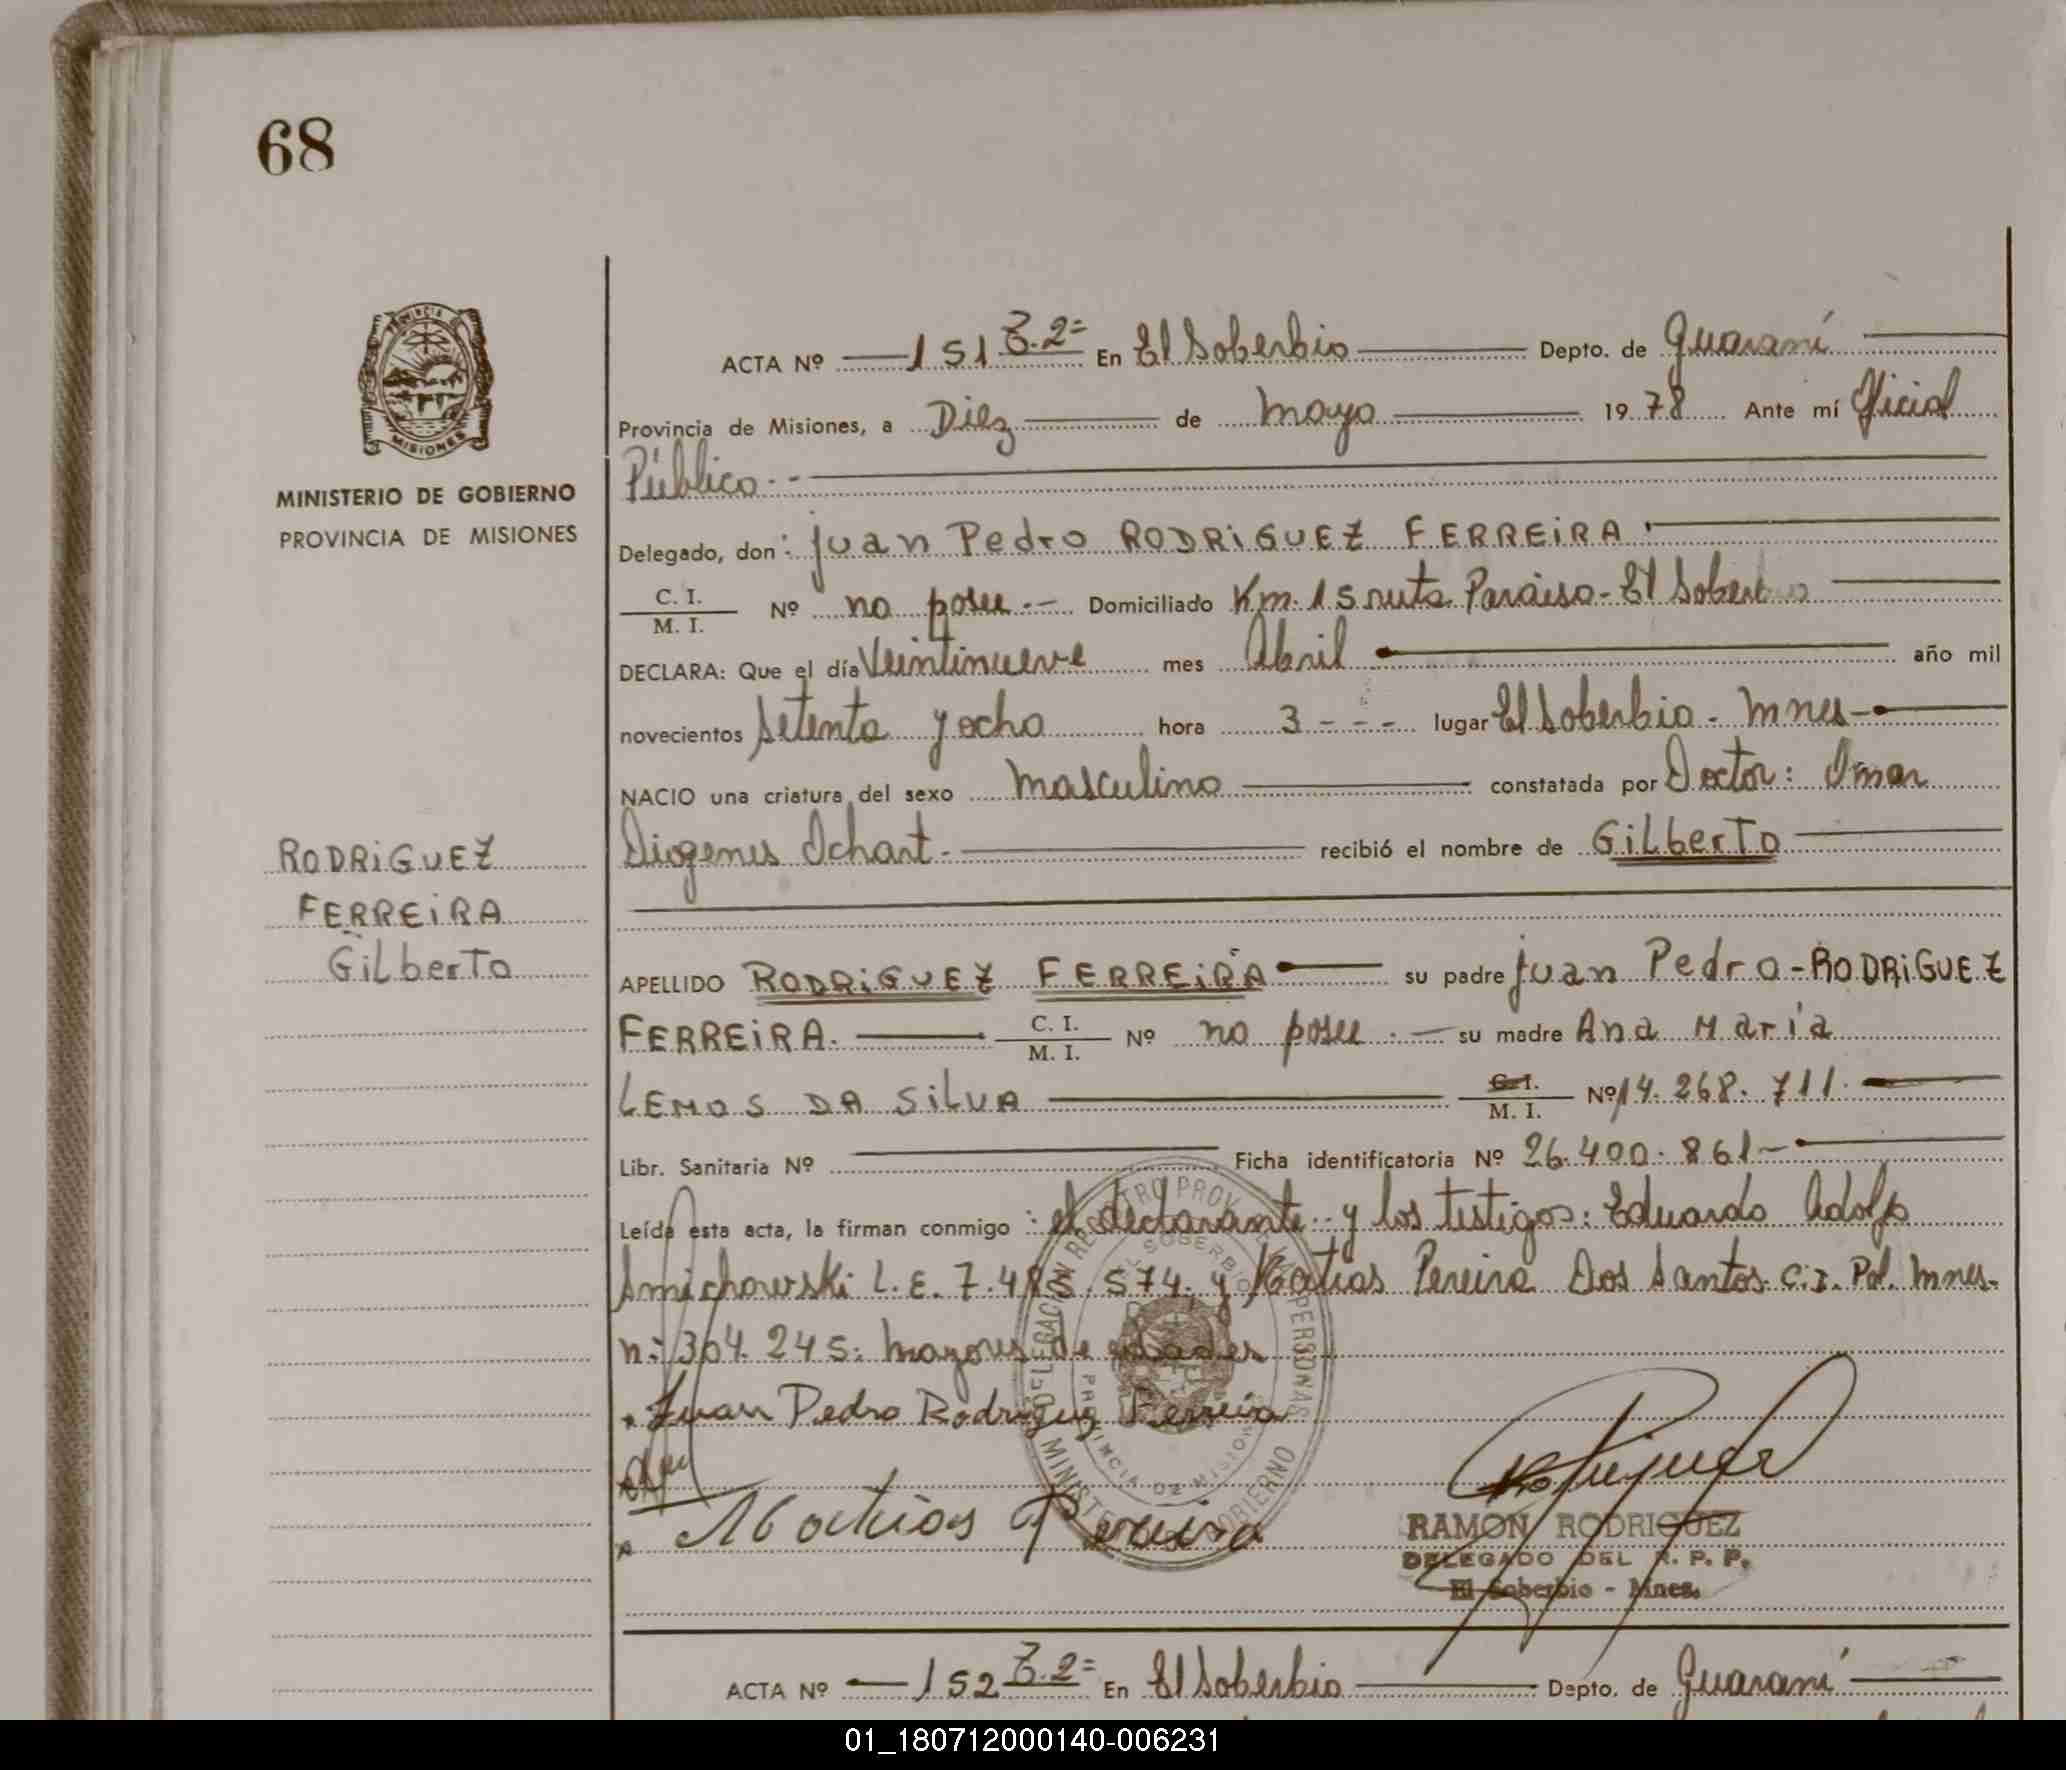 68
MINISTERIO DE GOBIERNO
PROVINCIA DE MISIONES
RODRiGUEZ
FERREiRA
GiLberTo
ACTA Nº 151 T.2= En El Soberbio Depto. de Guaraní
Provincia de Misiones, a Diez de mayo 1978 Ante mí Oficial
Público.-
Delegado, don: juan Pedro RODRiGUEZ FERREiRA.
C. I. / M. I. Nº no posee.- Domiciliado Km. 15 ruta Paraiso - El Soberbio
DECLARA: Que el día Veintinueve mes Abril año mil
novecientos setenta y ocho hora 3 - - - lugar El Soberbio - Mnes -
NACIO una criatura del sexo masculino constatada por Doctor: Omar
Diogenes Ochart. recibió el nombre de GiLberTo
APELLIDO RODRiGUEZ FERREiRA su padre juan Pedro - RODRiGUEZ
FERREiRA. C. I. / M. I. Nº no posee .- su madre Ana María
LEMOS DA SiLVA C. I. / M. I. Nº 14.268.711.
Libr. Sanitaria Nº Ficha identificatoria Nº 26.400.861-
Leída esta acta, la firman conmigo: el declarante y los testigos: Eduardo Adolfo
Smichowski L.E. 7.485.574. y Matias Pereira Dos Santos C.I. Pol. Mnes.
n: 304.245: mayores de edades
Juan Pedro Rodriguez Ferreira
Matias Pereira
DELEGACION REGISTRO PROV. PERSONAS
EL SOBERBIO
PROVINCIA DE MISIONES
MINISTERIO GOBIERNO
RAMON RODRIGUEZ
DELEGADO DEL R. P. P.
El Soberbio - Mnes.
ACTA Nº 152 T.2= En El Soberbio Depto. de Guaraní
01_180712000140-006231